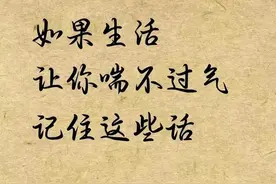 如果生活
让你喘不过气
记住这些话